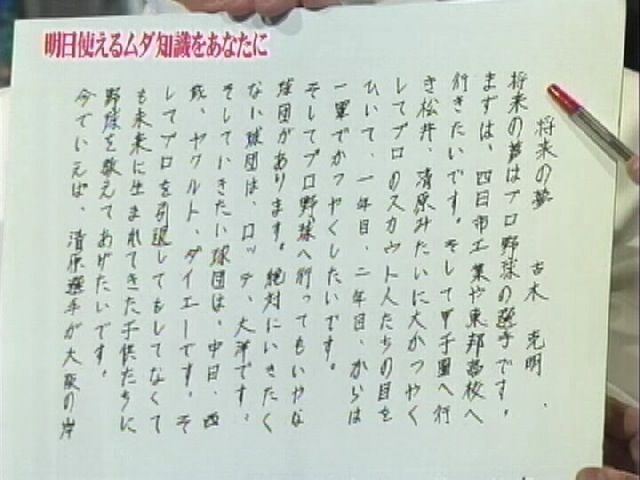 明日使えるムダ知識をあなたに
将来の夢 古木克明
将来の夢はプロ野球の選手です。
まずは、四日市工業や東邦高校へ
行きたいです。そして甲子園へ行
き松井、清原みたいに大かつやく
してプロのスカウト人たちの目を
ひいて、一年目、二年目、からは
一軍でかつやくしたいです。
そしてプロ野球へ行ってもいやな
球団があります。絶対にいきたく
ない球団は、ロッテ、大洋です、
そしていきたい球団は、中日、西
武、ヤクルト、ダイエーです。そ
してプロを引退してもしてなくて
も未来に生まれてきた子供たちに
野球を教えてあげたいです。
今でいえば、清原選手が大阪の岸